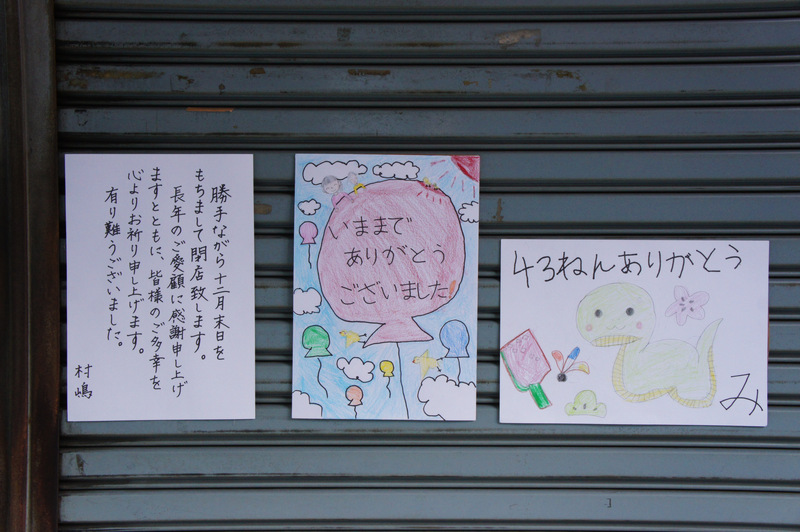 勝手ながら十二月末日を
もちまして閉店致します。
長年のご愛顧に感謝申し上げ
ますとともに、皆様のご多幸を
心よりお祈り申し上げます。
有り難うございました。
村嶋
いままで
ありがとう
ございました
43ねんありがとう
み